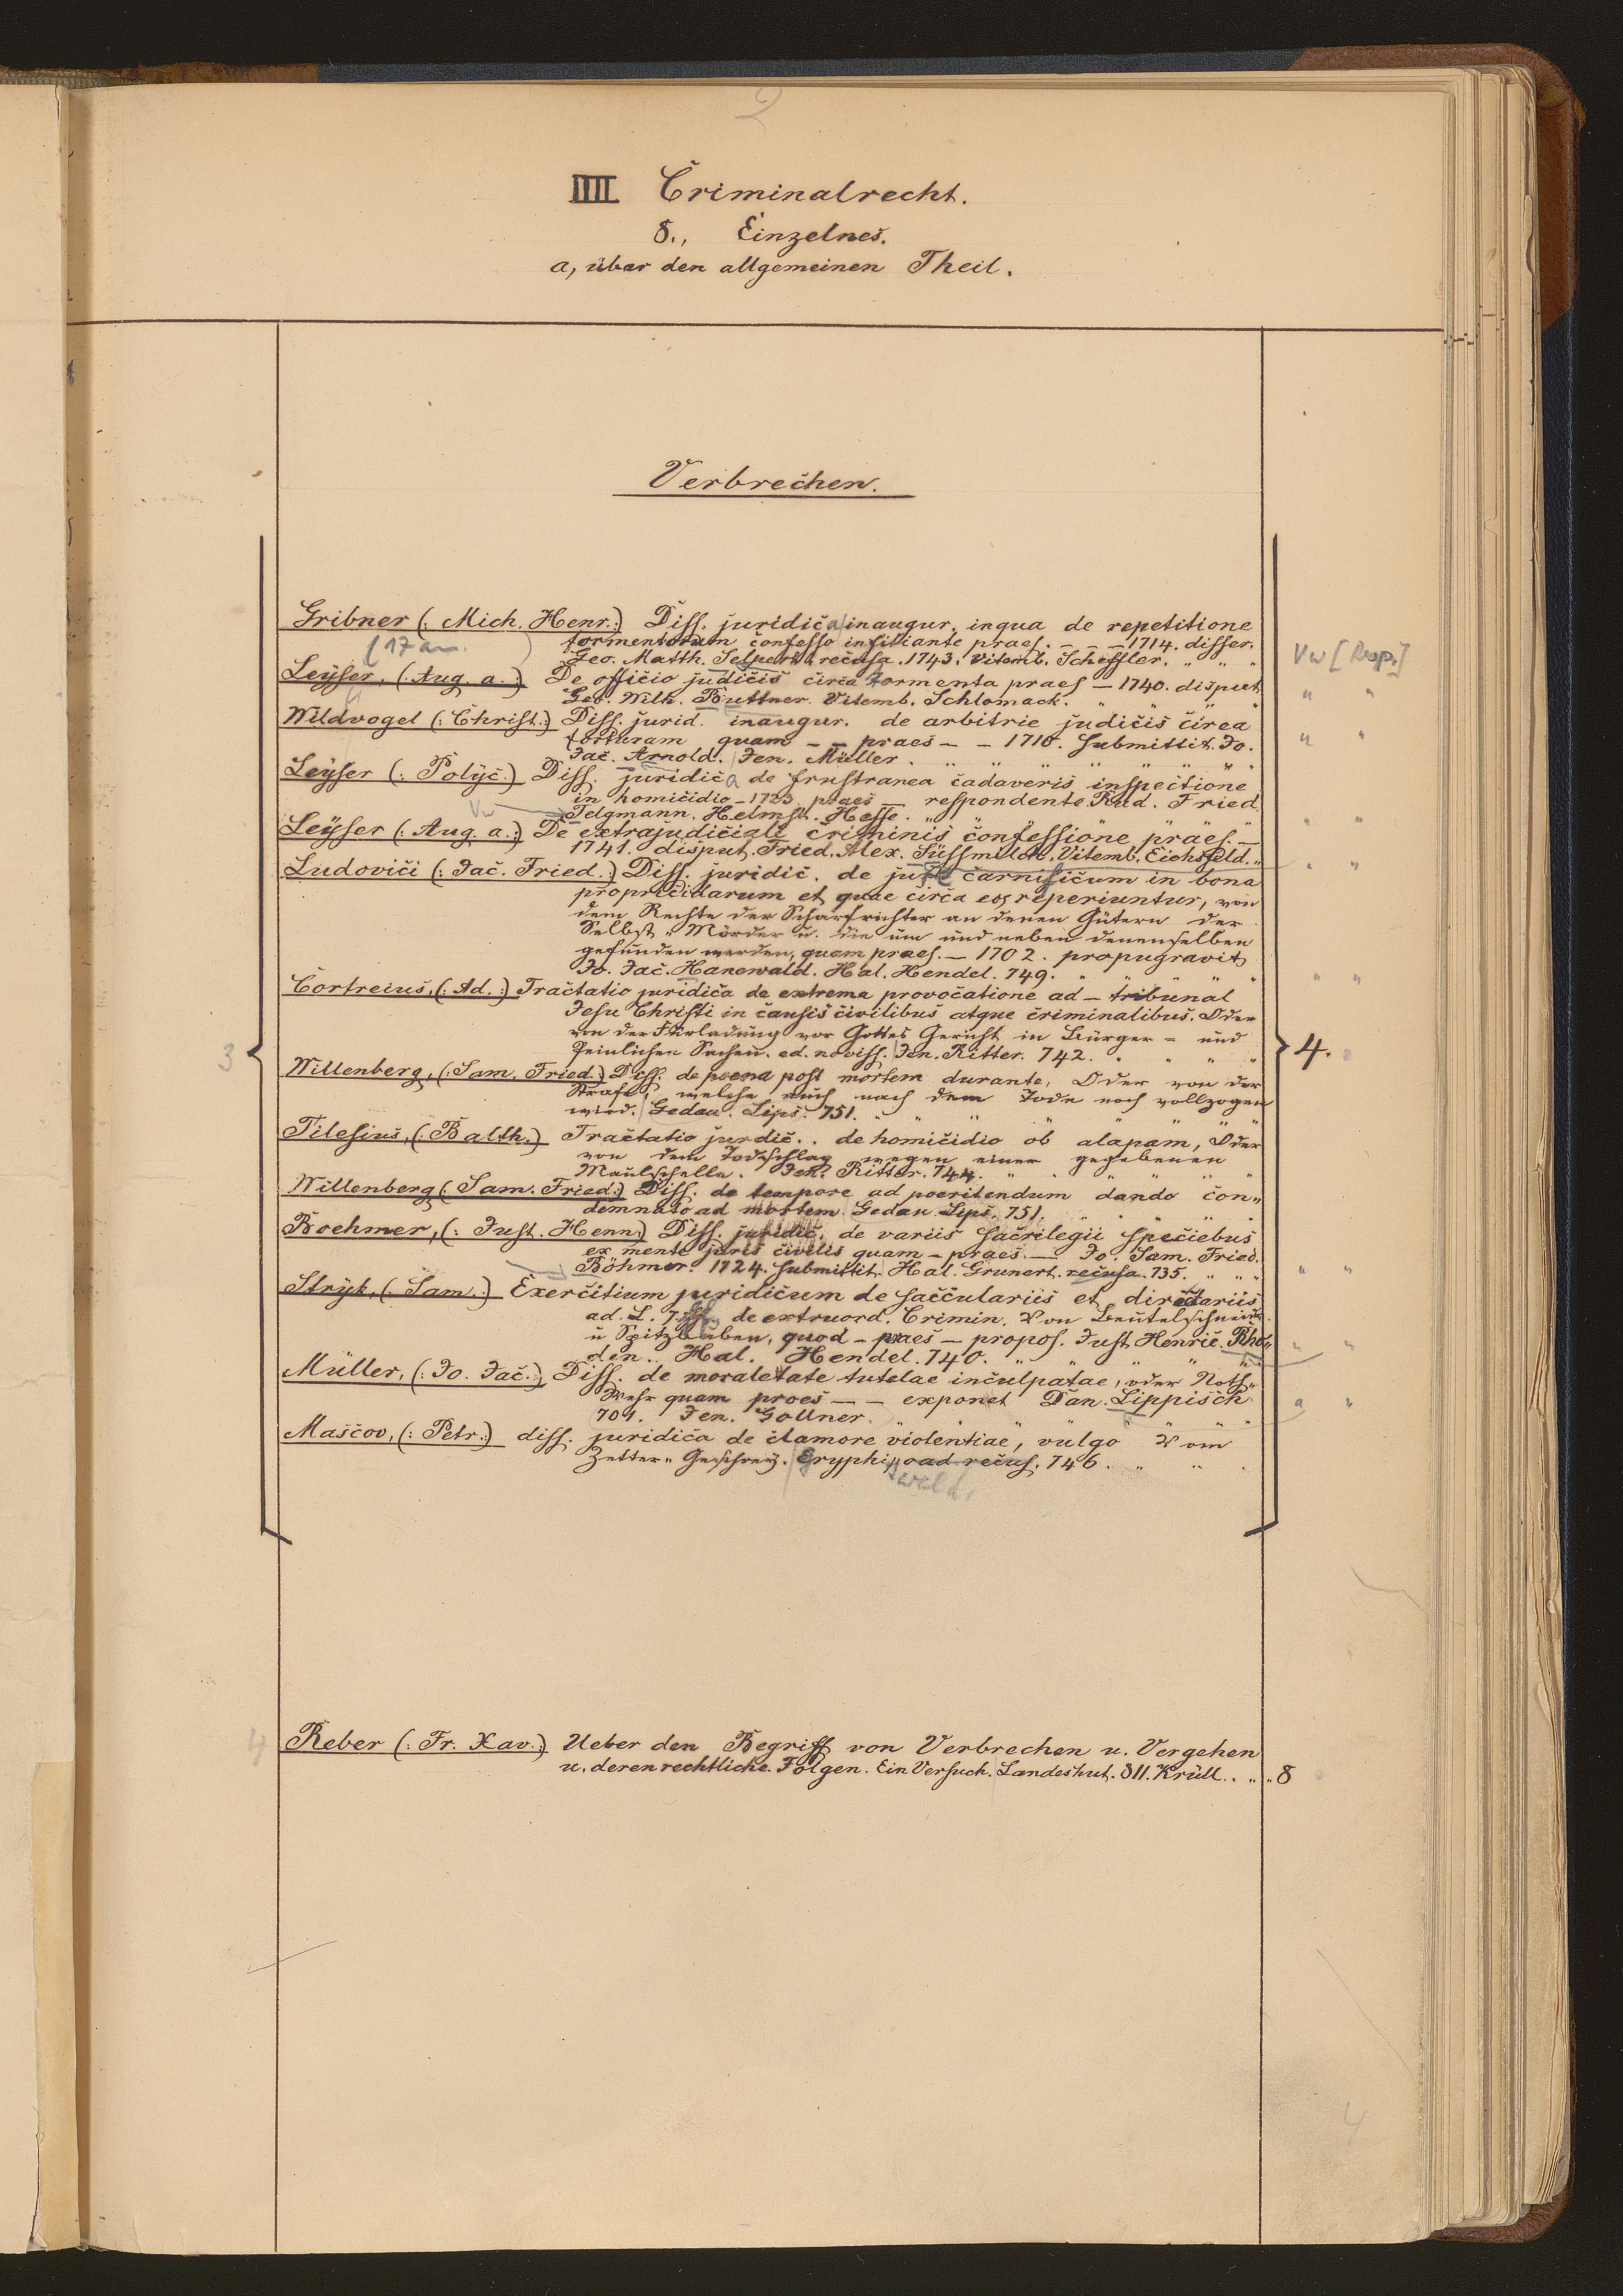 2
IIII Criminalrecht.
8., Einzelnes.
a, über den allgemeinen Theil.
Verbrechen.
Gribner (: Mich. Henr.:) Diss. juridica inaugur. inqua de repetitione
tormentorum confesso infitiante praes. - - - 1714. disser.
Geo. Matth. Selpert recusa. 1743. Vitemb. Scheffler. „ „ „
Vw [Resp.]
Leyser, (: Aug. a.:) De officio judicis circa tormenta praes — 1740. disput
Geo. Wilh. Buttner. Vitemb. Schlomack. „ „ „ „
Wildvogel (: Christ.:) Diss. jurid. inaugur. de arbitrie judicis circa
torturam quam - - praes - - 1710. submittit. Jo.
Jac. Arnold. Jen. Müller. „ „ „ „ „ „
Leyser (: Polyc.:) Diss. juridica de frustranea cadaveris inspectione
in homicidio - 1723 praes — respondente Rud. Fried
Vw
Telgmann. Helmst. Hesse. „ „ „ „ „
Leyser (: Aug. a.:) De extrajudiciali criminis confessione praes. —
1741. disput. Fried. Alex. Süssmilch. Vitemb. Eichsfeld. „
Ludovici (: Jac. Fried.:) Diss. juridic. de jure carnificum in bona
propricidarum et quae circa eos reperiuntur, von
dem Rechte der Scharfrichter an denen Gütern der
Selbst „ Mörder u. die um und neben denenselben
gefunden werden, quam praes. — 1702. propugravit
Jo. Jac. Hanewald. Hal. Hendel. 749. „ „ „ „ „
Cortreius, (: Ad.:) Tractatio juridica de extrema provocatione ad — tribunal
Jesu Christi in causis civilibus atque criminalibus. Oder
von der Fürladung vor Gottes Gericht in Bürger - und
Peinlichen Sachen. ed. noviss. Jen. Ritter. 742. „ „ „ „
3
4.
Willenberg, (: Sam. Fried.:) Diss. de poena post mortem durante, Oder von der
Strafe, welche auch nach dem Tode noch vollzogen
wird. Gedau. Lips. 751. „ „ „ „ „
Tilesius, (: Balth.:) Tractatio jurdic.. de homicidio ob alapam, Oder
von dem Todschlag wegen einer gegebenen
Maulschelle. Jen. Ritter. 744. „ „ „ „ „
Willenberg (: Sam. Fried.:) Diss. de tempore ad poeritendum dando con„
demnato ad mortem Gedau Lips. 751. „ „ „ „
Boehmer, (: Just. Henn:) Diss. juridic. de variis sacrilegii speciebus
ex mente juris civilis quam - praes. — Jo. Sam. Fried.
Böhmer. 1724. submittit. Hal. Grunert. recusa. 735. „ „ „
Stryk, (: Sam.:) Exercitium juridicum de saccculariis et directariis
ad. L. 7. de extruord. Crimin. Von Beutelschneid.
u Spitzbuben, quod - praes - propos. Just Henric. Rho„
den. Hal. Hendel. 740. „ „ „ „ „
Müller, (: Jo. Jac.:) Diss. de moraletate tutelae inculpatae, oder Noth„
Wehr quam praes — — exponet Dan. Lippisch
704. Jen. Gollner. „ „ „ „ „ „
Mascov, (: Petr.:) diss. juridica de clamore violentiae, vulgo Vom
Zetter „ Geschrey. Gryphiswald. recus. 746. „ „ „
4
Reber (: Fr. Xav.:) Ueber den Begriff von Verbrechen u. Vergehen
u. deren rechtliche Folgen. Ein Versuch. Landeshut. 811. Krüll. „ „ 8
4